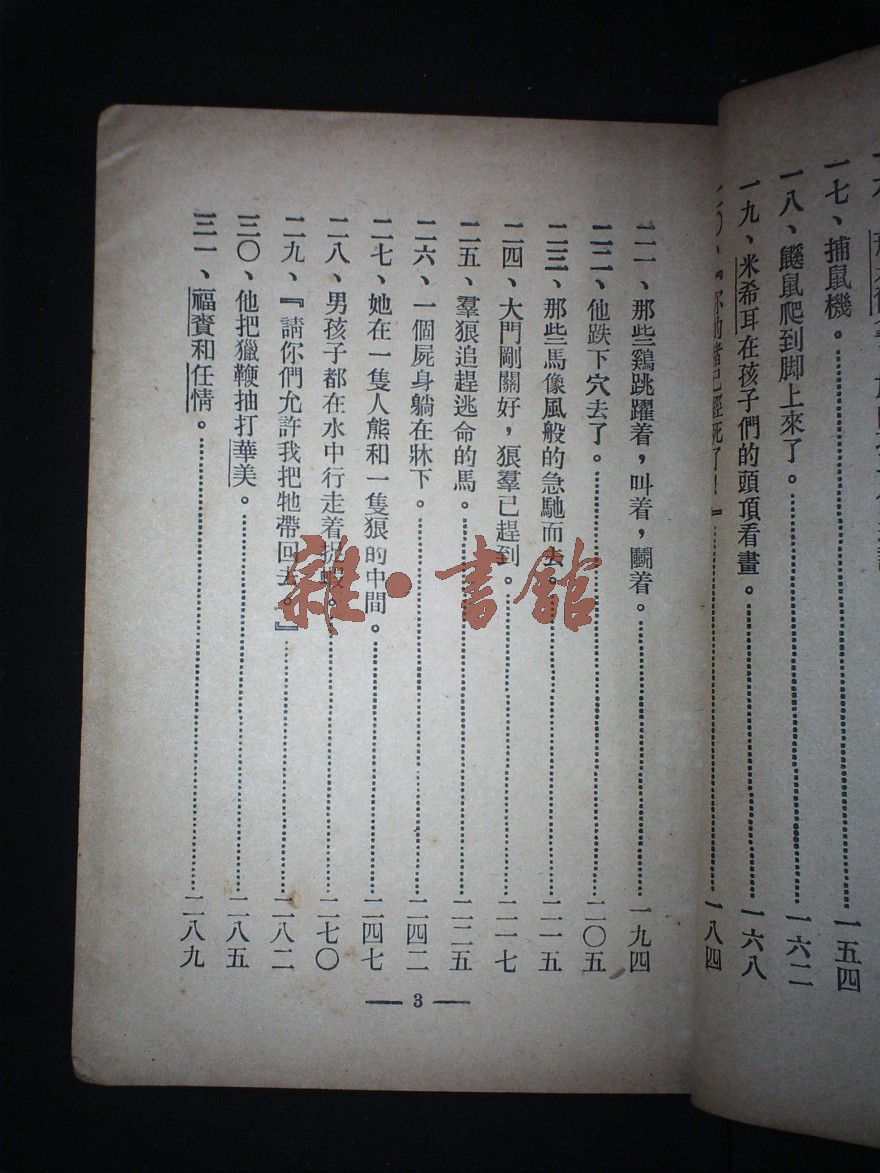 一七、捕鼠機。…………一五四
一八、鼴鼠爬到脚上來了。…………一六二
一九、米希耳在孩子們的頭頂看畫。…………一六八
死了！』…………一八四
二一、那些鷄跳躍着，叫着，鬭着。…………一九四
二二、他跌下穴去了。…………二〇五
二三、那些馬像風般的急馳而去。…………二一五
二四、大門剛關好，狼羣已趕到。…………二一七
二五、羣狼追趕逃命的馬。…………二二五
二六、一個屍身躺在牀下。…………二四二
二七、她在一隻人熊和一隻狼的中間。…………二四七
二八、男孩子都在水中行走着捉蝦。…………二七〇
二九、『請你們允許我把牠帶回去。』…………二八二
三〇、他把獵鞭抽打華美。…………二八五
三一、福賚和任情。…………二八九
— 3 —
雜·書館